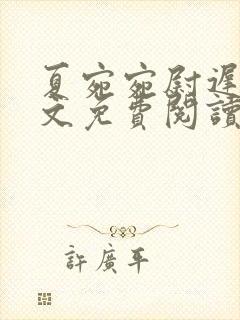 夏宛宛尉遲
文免費閱讀
許廣平